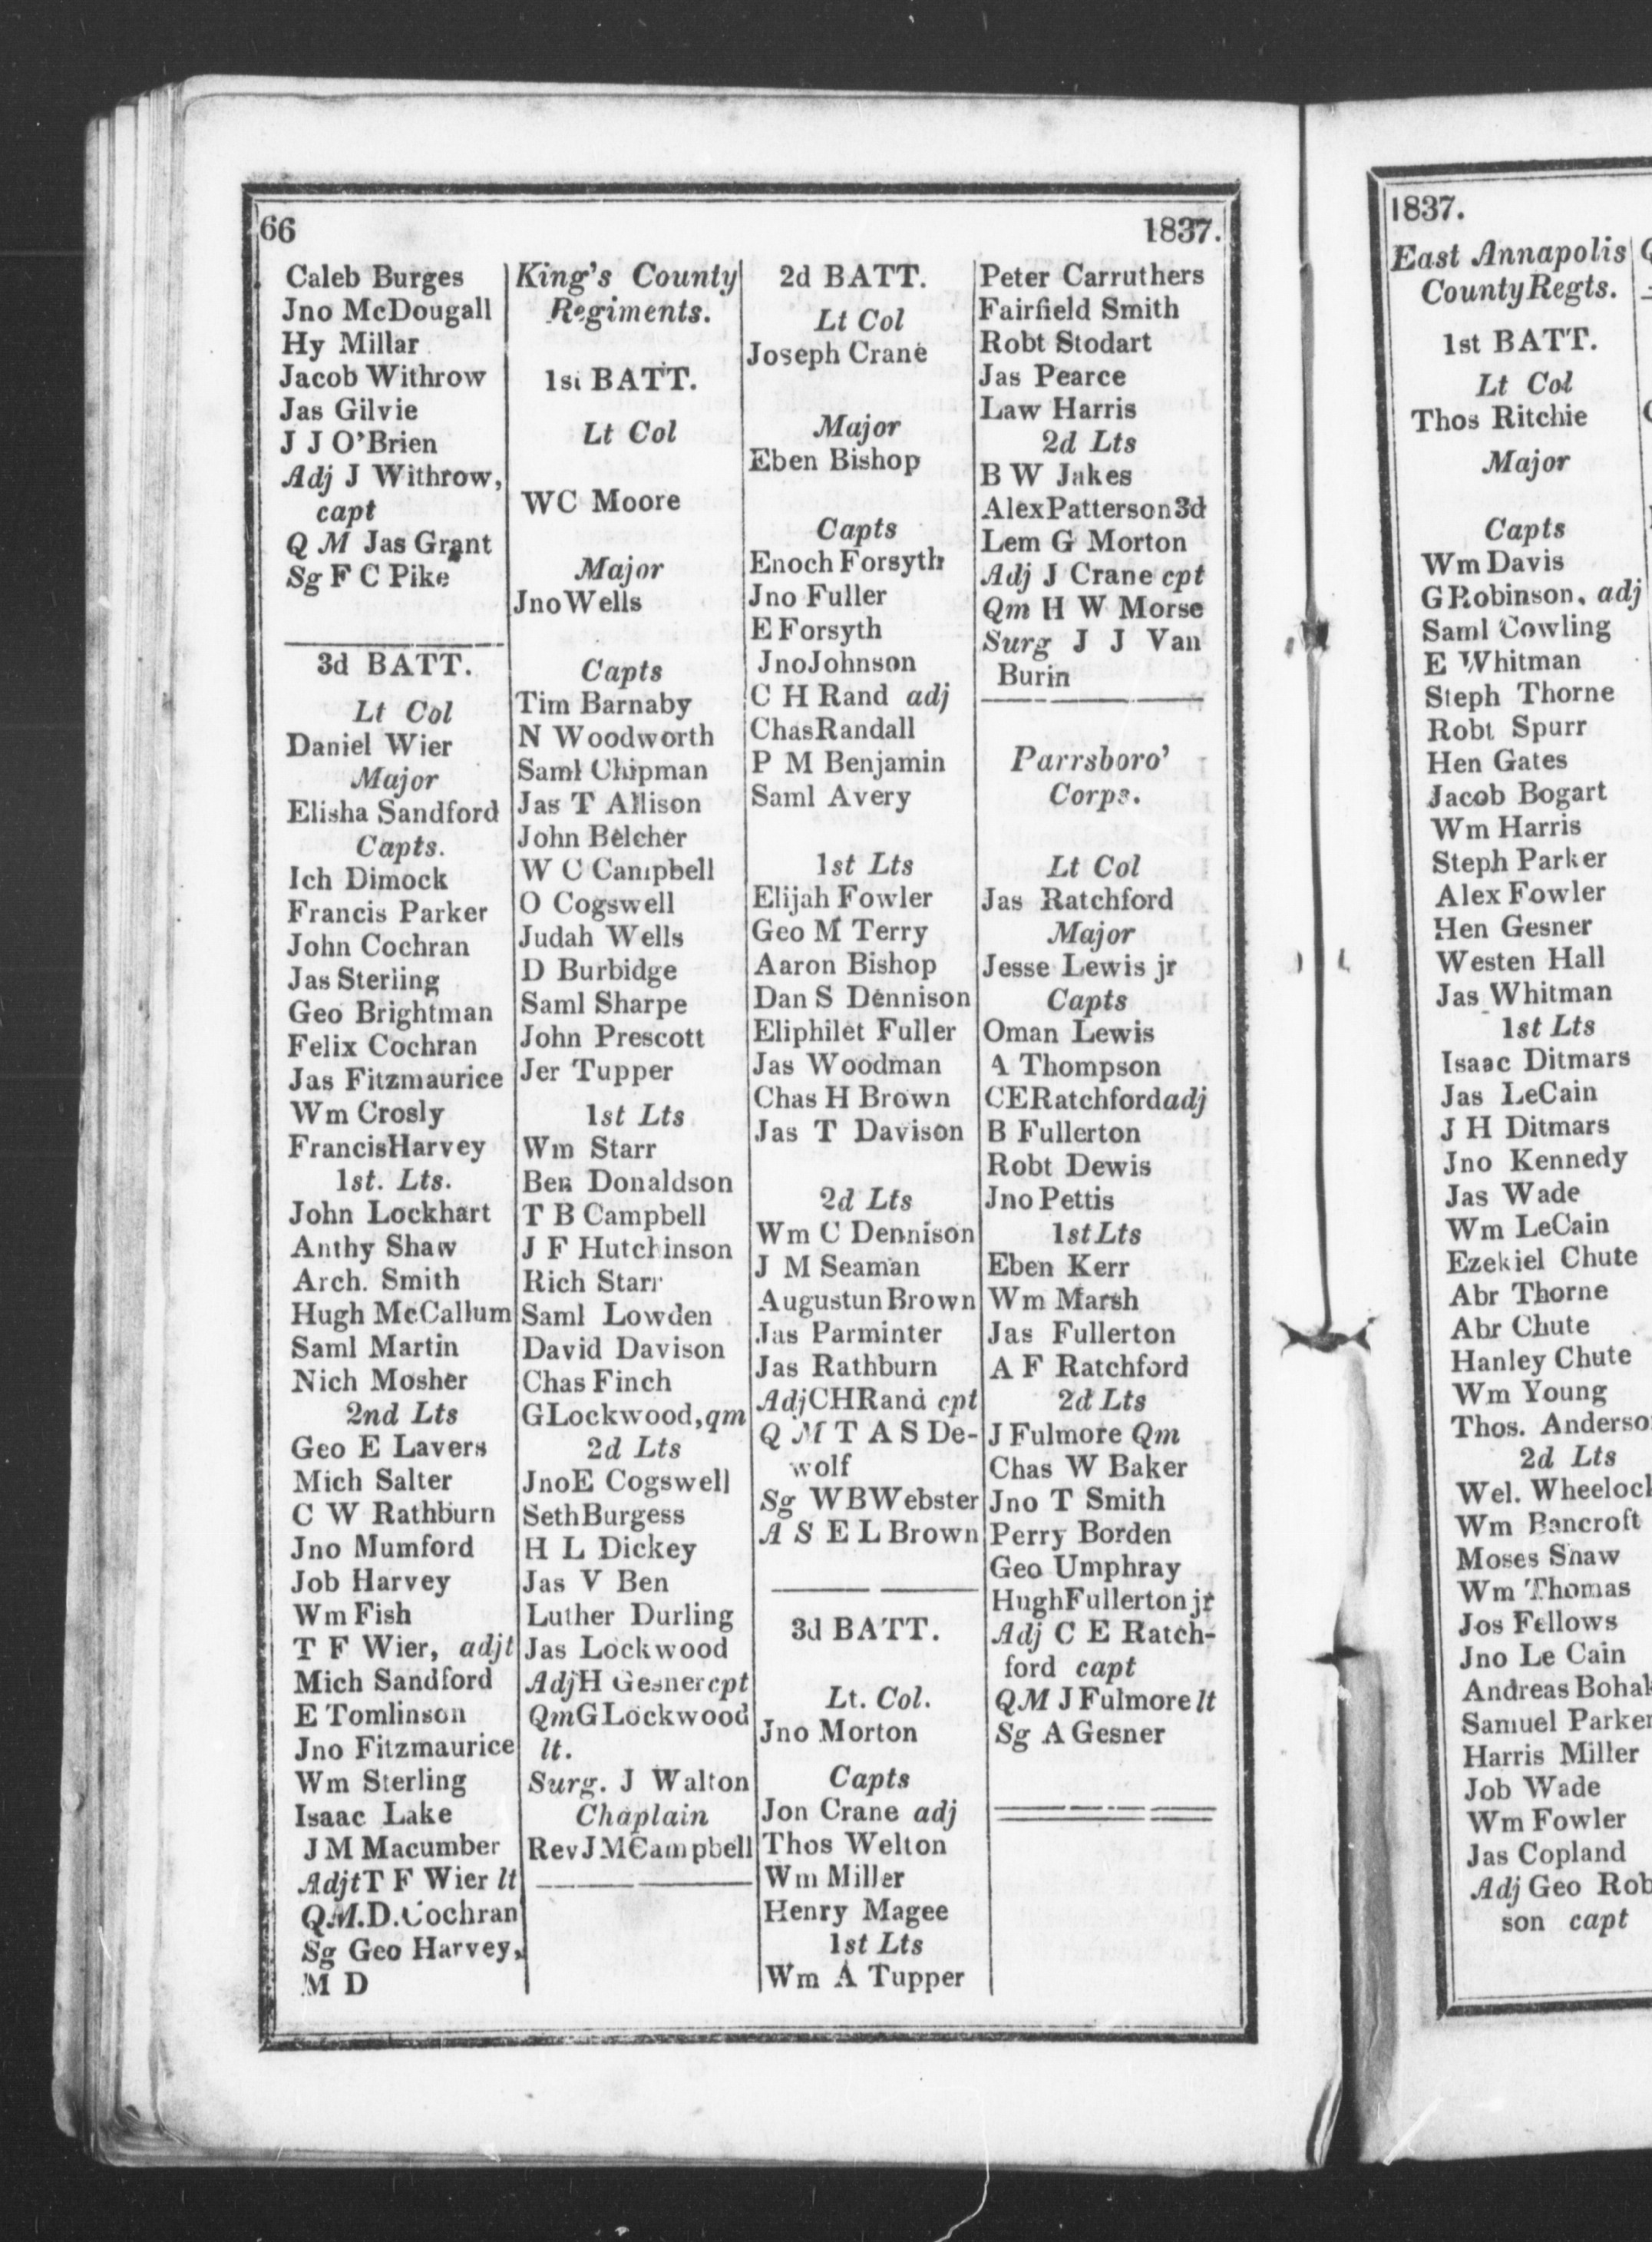 66
1837.
Caleb Burges
Jno McDougall
Hy Millar
Jacob Withrow
Jas Gilvie
J J O'Brien
Adj J Withrow,
capt
Q M Jas Grant
Sg F C Pike
3d BATT.
Lt Col
Daniel Wier
Major
Elisha Sandford
Capts.
Ich Dimock
Francis Parker
John Cochran
Jas Sterling
Geo Brightman
Felix Cochran
Jas Fitzmaurice
Wm Crosly
Francis Harvey
1st. Lts.
John Lockhart
Anthy Shaw
Arch. Smith
Hugh McCallum
Saml Martin
Nich Mosher
2nd Lts
Geo E Lavers
Mich Salter
C W Rathburn
Jno Mumford
Job Harvey
Wm Fish
T F Wier, adjt
Mich Sandford
E Tomlinson
Jno Fitzmaurice
Wm Sterling
Isaac Lake
J M Macumber
Adjt T F Wier lt
Q.M. D. Cochran
Sg Geo Harvey,
M D
King's County
Regiments.
1st BATT.
Lt Col
W C Moore
Major
Jno Wells
Capts
Tim Barnaby
N Woodworth
Saml Chipman
Jas T Allison
John Belcher
W C Campbell
O Cogswell
Judah Wells
D Burbidge
Saml Sharpe
John Prescott
Jer Tupper
1st Lts
Wm Starr
Ben Donaldson
T B Campbell
J F Hutchinson
Rich Starr
Saml Lowden
David Davison
Chas Finch
G Lockwood, qm
2d Lts
Jno E Cogswell
Seth Burgess
H L Dickey
Jas V Ben
Luther Durling
Jas Lockwood
Adj H Gesner cpt
Qm G Lockwood
lt.
Surg. J Walton
Chaplain
Rev J M Campbell
2d BATT.
Lt Col
Joseph Crane
Major
Eben Bishop
Capts
Enoch Forsyth
Jno Fuller
E Forsyth
Jno Johnson
C H Rand adj
Chas Randall
P M Benjamin
Saml Avery
1st Lts
Elijah Fowler
Geo M Terry
Aaron Bishop
Dan S Dennison
Eliphilet Fuller
Jas Woodman
Chas H Brown
Jas T Davison
2d Lts
Wm C Dennison
J M Seaman
Augustun Brown
Jas Parminter
Jas Rathburn
Adj C H Rand cpt
Q M T A S De-
wolf
Sg W B Webster
A S E L Brown
3d BATT.
Lt. Col.
Jno Morton
Capts
Jon Crane adj
Thos Welton
Wm Miller
Henry Magee
1st Lts
Wm A Tupper
Peter Carruthers
Fairfield Smith
Robt Stodart
Jas Pearce
Law Harris
2d Lts
B W Jakes
Alex Patterson 3d
Lem G Morton
Adj J Crane cpt
Qm H W Morse
Surg J J Van
Burin
Parrsboro'
Corps.
Lt Col
Jas Ratchford
Major
Jesse Lewis jr
Capts
Oman Lewis
A Thompson
C E Ratchford adj
B Fullerton
Robt Dewis
Jno Pettis
1st Lts
Eben Kerr
Wm Marsh
Jas Fullerton
A F Ratchford
2d Lts
J Fulmore Qm
Chas W Baker
Jno T Smith
Perry Borden
Geo Umphray
Hugh Fullerton jr
Adj C E Ratch-
ford capt
Q M J Fulmore lt
Sg A Gesner
1837.
East Annapolis
County Regts.
1st BATT.
Lt Col
Thos Ritchie
Major
Capts
Wm Davis
G Robinson, adj
Saml Cowling
E Whitman
Steph Thorne
Robt Spurr
Hen Gates
Jacob Bogart
Wm Harris
Steph Parker
Alex Fowler
Hen Gesner
Westen Hall
Jas Whitman
1st Lts
Isaac Ditmars
Jas LeCain
J H Ditmars
Jno Kennedy
Jas Wade
Wm LeCain
Ezekiel Chute
Abr Thorne
Abr Chute
Hanley Chute
Wm Young
Thos. Anderso
2d Lts
Wel. Wheelock
Wm Bancroft
Moses Shaw
Wm Thomas
Jos Fellows
Jno Le Cain
Andreas Bohak
Samuel Parker
Harris Miller
Job Wade
Wm Fowler
Jas Copland
Adj Geo Rob
son capt